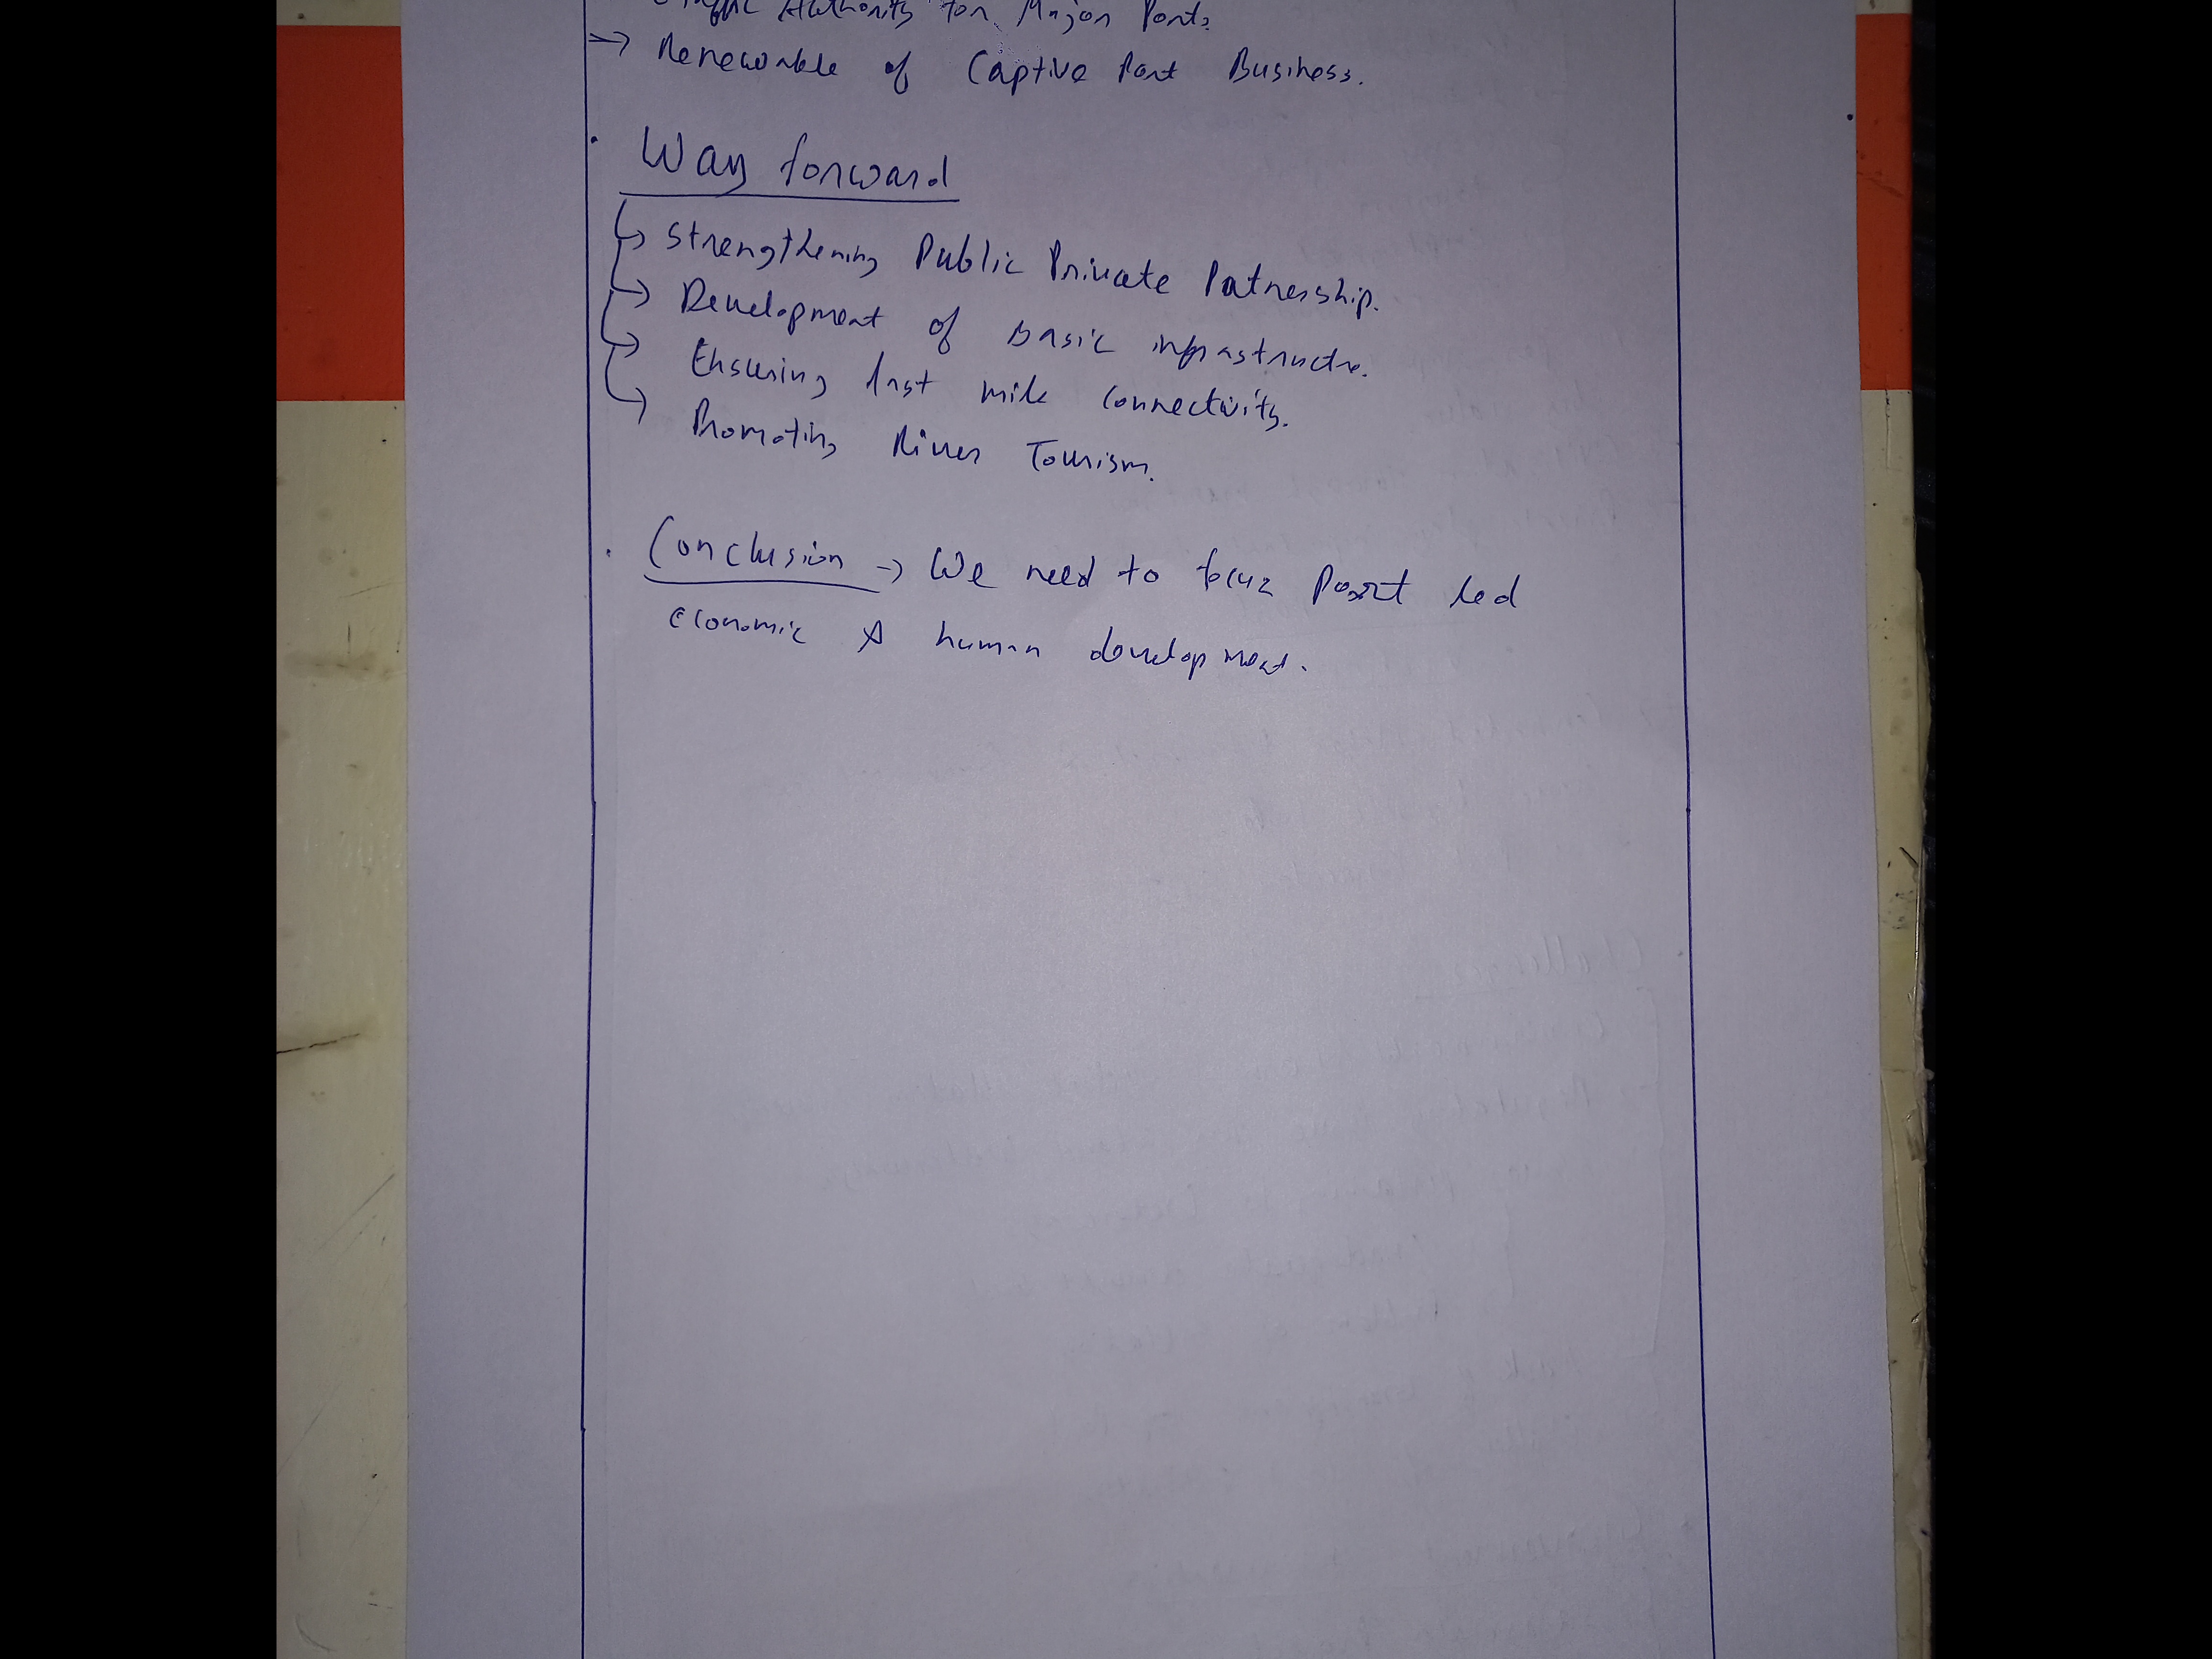 Authority for Major Ports
→ Renewable of Captive Port Business.
• Way forward
↳ Strengthening Public Private Patnership.
↳ Development of Basic infrastructre.
↳ Ensuring last mile connectivity.
↳ Promoting River Tourism.
• Conclusion → We need to focus Port led
economic & human development.